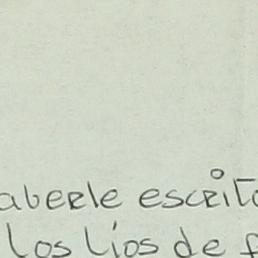 aberle escrito
los líos de f